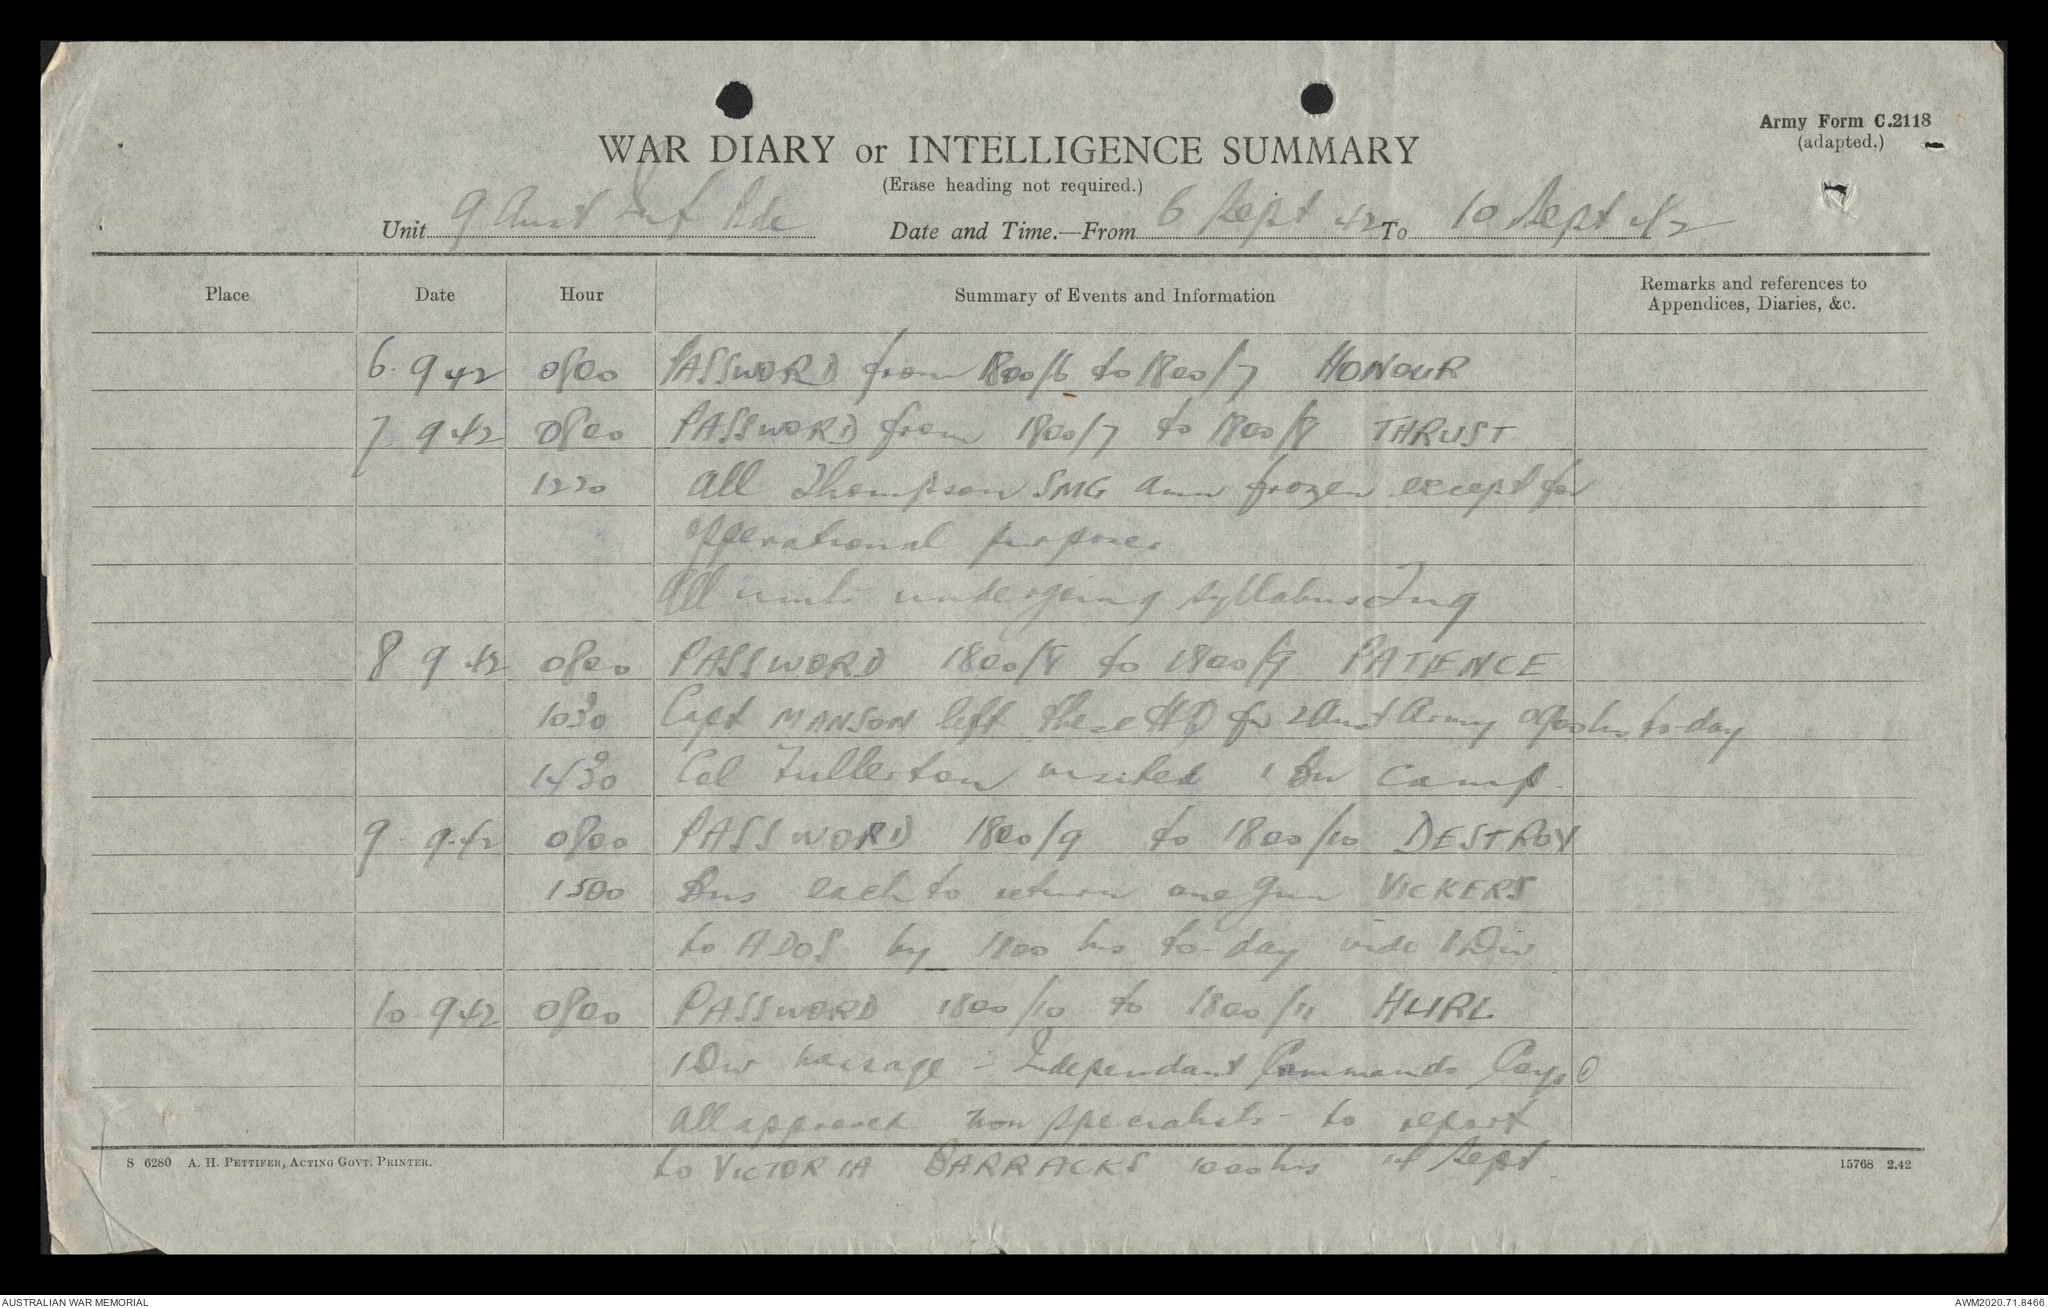 Army Form C.2118
(adapted.)
WAR DIARY or INTELLIGENCE SUMMARY
(Erase heading not required.)
Unit 9 Aust Inf Bde Date and Time.—From 6 Sept 42 To 10 Sept 42
Place Date Hour Summary of Events and Information Remarks and references to
Appendices, Diaries, &c.
6. 9 42 0800 PASSWORD from 1800/6 to 1800/7 HONOUR
7 9 42 0800 PASSWORD from 1800/7 to 1800/8 THRUST
1220 All Thompson SMG amn frozen except for
operational purposes
All units undergoing syllabus Tng
8 9 42 0800 PASSWORD 1800/8 to 1800/9 PATIENCE
1030 Capt MANSON left these HQ for 2 Aust Army 0900 hrs to-day
1430 Col Fullerton visited 1 Bn Camp.
9 9.42 0800 PASSWORD 1800/9 to 1800/10 DESTROY
1500 Bns each to return one gun VICKERS
to ADOS by hrs to-day vide 1 Div
10 9 42 0800 PASSWORD 1800/10 to 1800/11 HURL
1 Div message - Independant Commando Coys
All approved non specialists - to report
to VICTORIA BARRACKS 1000 hrs 14 Sept
S 6280 A. H. PETTIFER, ACTING GOVT. PRINTER. 15768 2.42
AUSTRALIAN WAR MEMORIAL AWM2020.71.8466